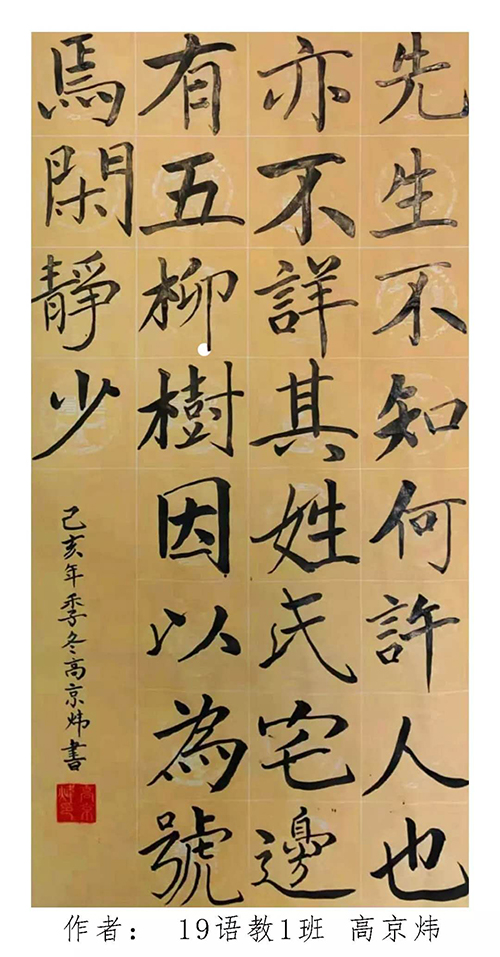 先生不知何許人也
亦不詳其姓氏宅邊
有五柳樹因以為號
焉閑靜少
己亥年季冬高京炜書
作者： 19语教1班 高京炜